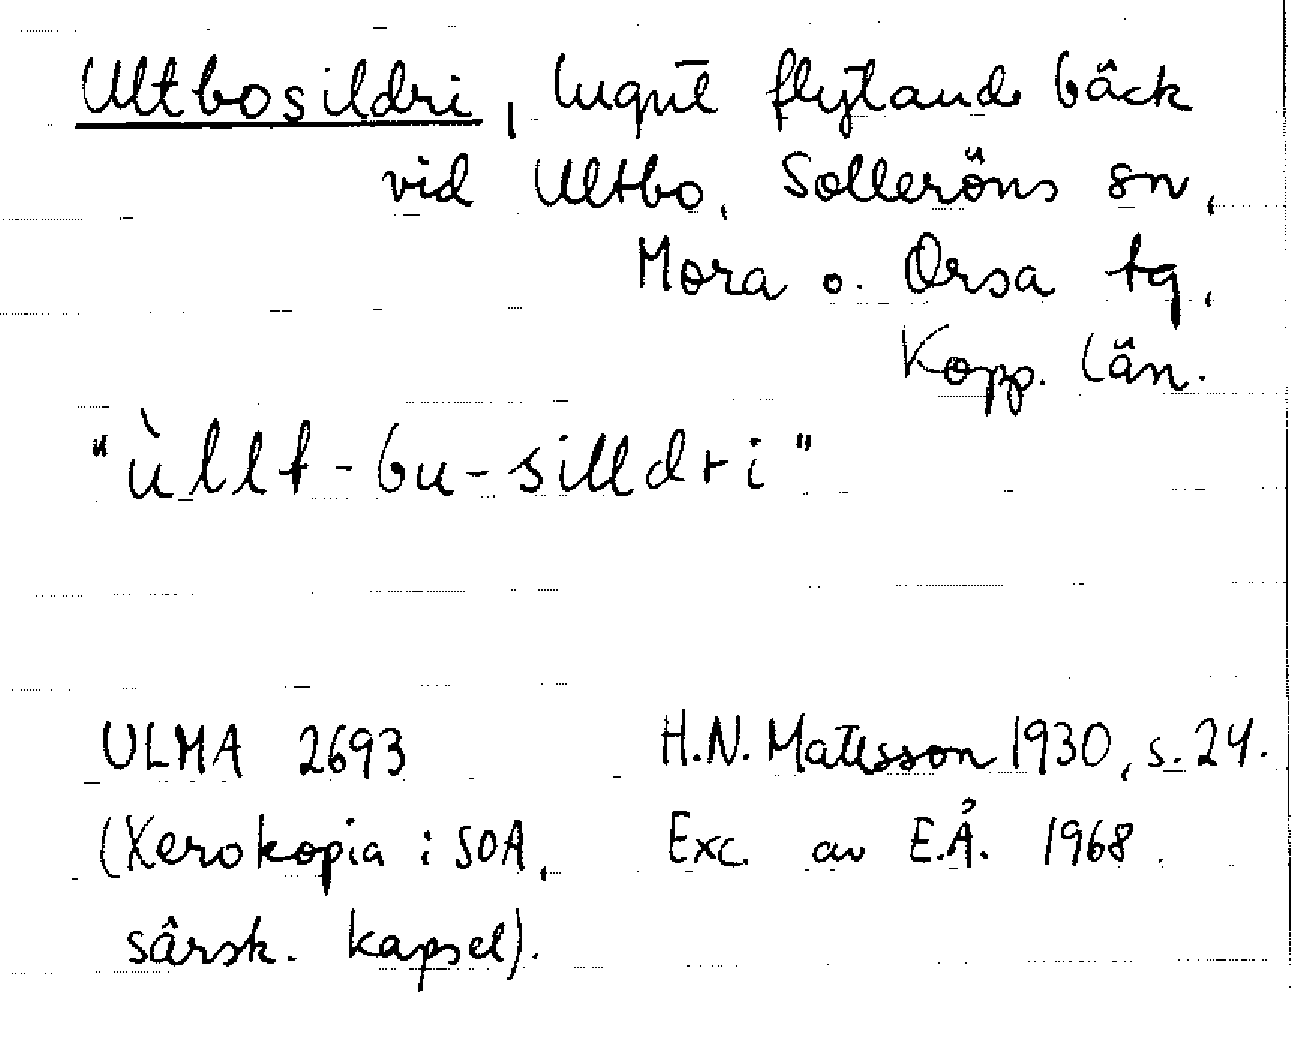 Ultbosildri, lugnt flytande bäck
vid Ultbo, Solleröns sn,
Mora o. Orsa tg,
Kopp. län.
"ùllt-bu-silldri"
ULMA 2693 H.N. Matsson 1930, s. 24.
(Xerokopia i SOA, Exc. av E.Å. 1968.
särsk. kapsel).